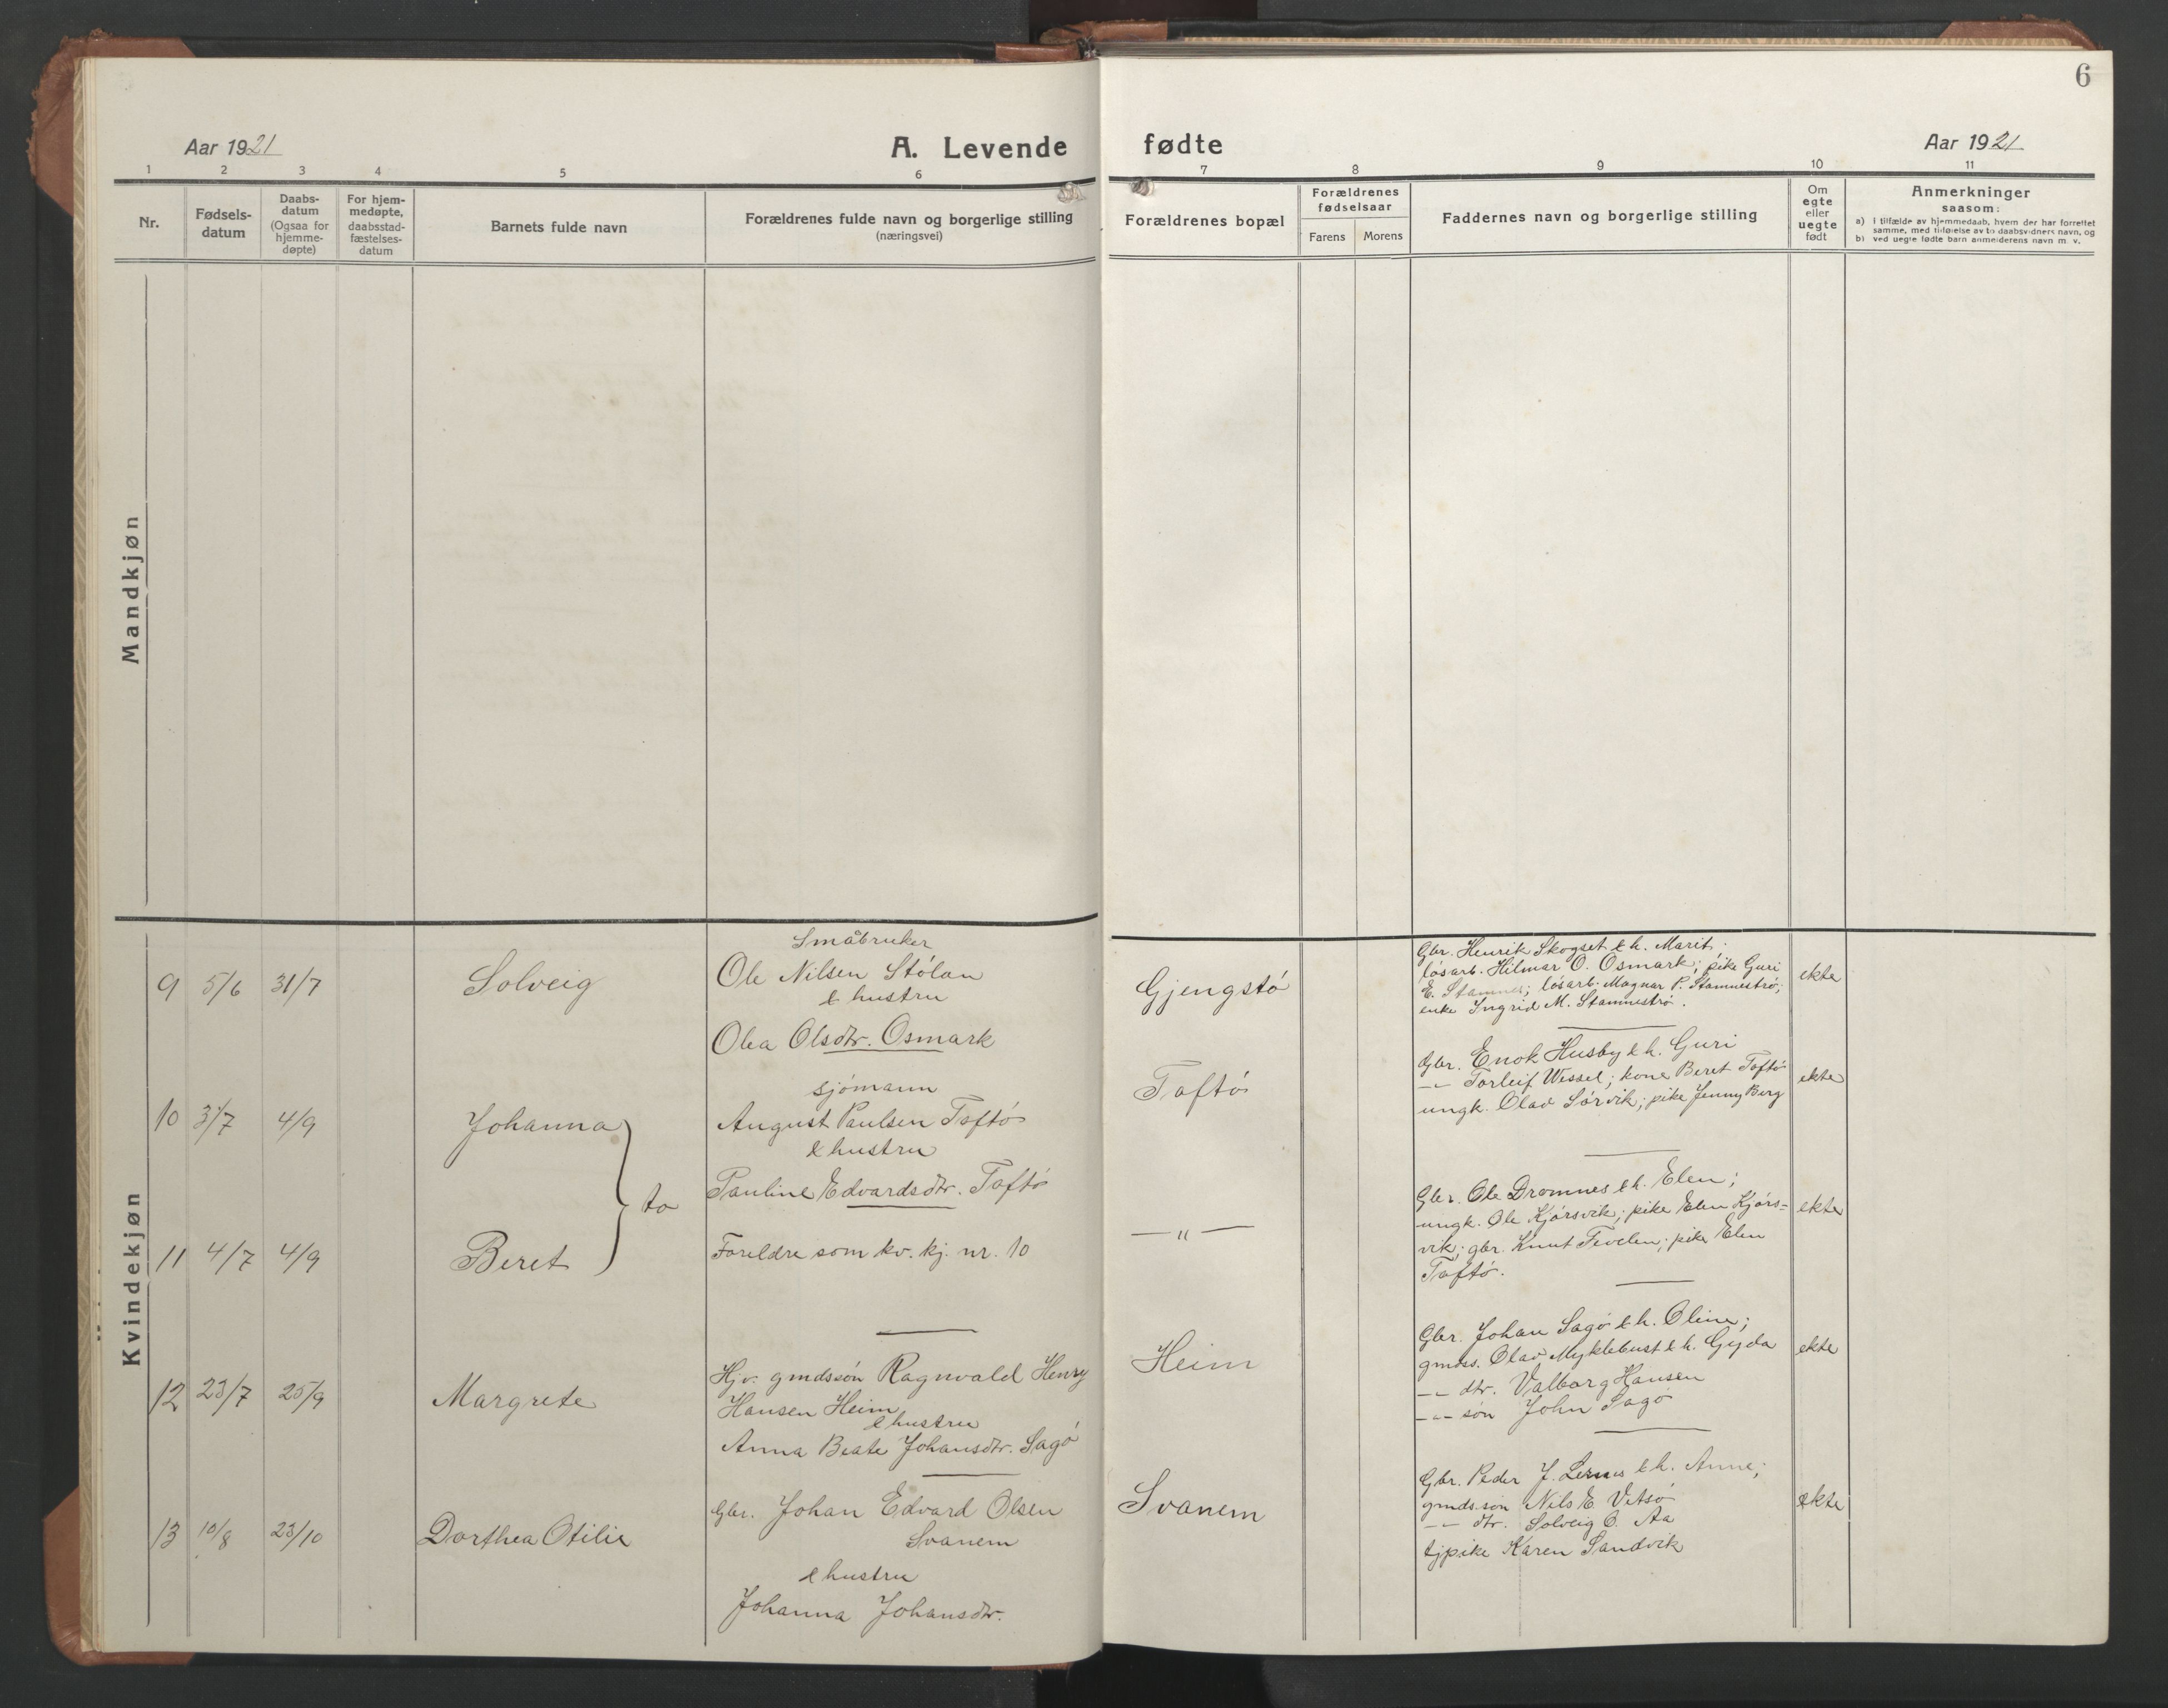 6
Aar 1921
A. Levende fødte
Aar 1921
1 2 3 4 5 6 7 8 9 10 11
Nr.
Fødsels-
datum
Daabs-
datum
(Ogsaa for
hjemme-
døpte)
For hjem-
medøpte,
daabsstad-
fæstelses-
datum
Barnets fulde navn
Forældrenes fulde navn og borgerlige stilling
(næringsvei)
Forældrenes bopæl
Forældrenes
fødselsaar
Farens Morens
Faddernes navn og borgerlige stilling
Om
egte
eller
uegte
født
Anmerkninger
saasom:
a) I tilfælde av hjemmedaab, hvem der har forrettet
samme, med tilføielse av to daabsvidners navn, og
b) ved uegte fødte barn anmelderens navn m. v.
Mandkjøn
Kvindekjøn
9 5/6 31/7 Solveig
Småbruker
Ole Nilsen Stólan
& hustru
Olea Olsdtr. Osmark
Gjengstó
Gbr. Henrik Skogset & h. Marit;
lósarb. Hilmar O. Osmark; pike Guri
E. Stamnes; lósarb. Magnar P. Stamnestró;
enke Ingrid M. Stamnestró.
ekte
10 3/7 4/9 Johanna
to
sjómann
August Paulsen Taftó
& hustru
Pauline Edvardsdtr. Taftó
Taftó
Gbr. Enok Husby & h. Guri
-"- Torleif Wessel; kone Beret Taftó
ungk. Olav Sórvik; pike Jenny Berg
ekte
11 4/7 4/9 Beret
Foreldre som kv. kj. nr. 10
— " —
Gbr. Ole Dromnes & h. Elen;
ungk. Ole Kjórsvik; pike Elen Kjórs=
vik; gbr. Knut Tevelen; pike Elen
Taftó.
ekte
12 23/7 25/9 Margrete
Hjv. gmdssón Ragnvald Henry
Hansen Heim
& hustru
Anna Beate Johansdtr. Sagó
Heim
Gbr. Johan Sagó & h. Oline;
gmdss. Olav Myklebust & h. Gyda
-"- dtr. Valborg Hansen
-"- són John Sagó
ekte
13 10/8 23/10 Dorthea Otilie
Gbr. Johan Edvard Olsen
Svanem
& hustru
Johanna Johansdtr.
Svanem
Gbr. Peder J. Lernes & h. Anne;
gmdssón Nils E. Vitsó
-"- dtr. Solveig O. Aa
tjpike Karen Sandvik
ekte